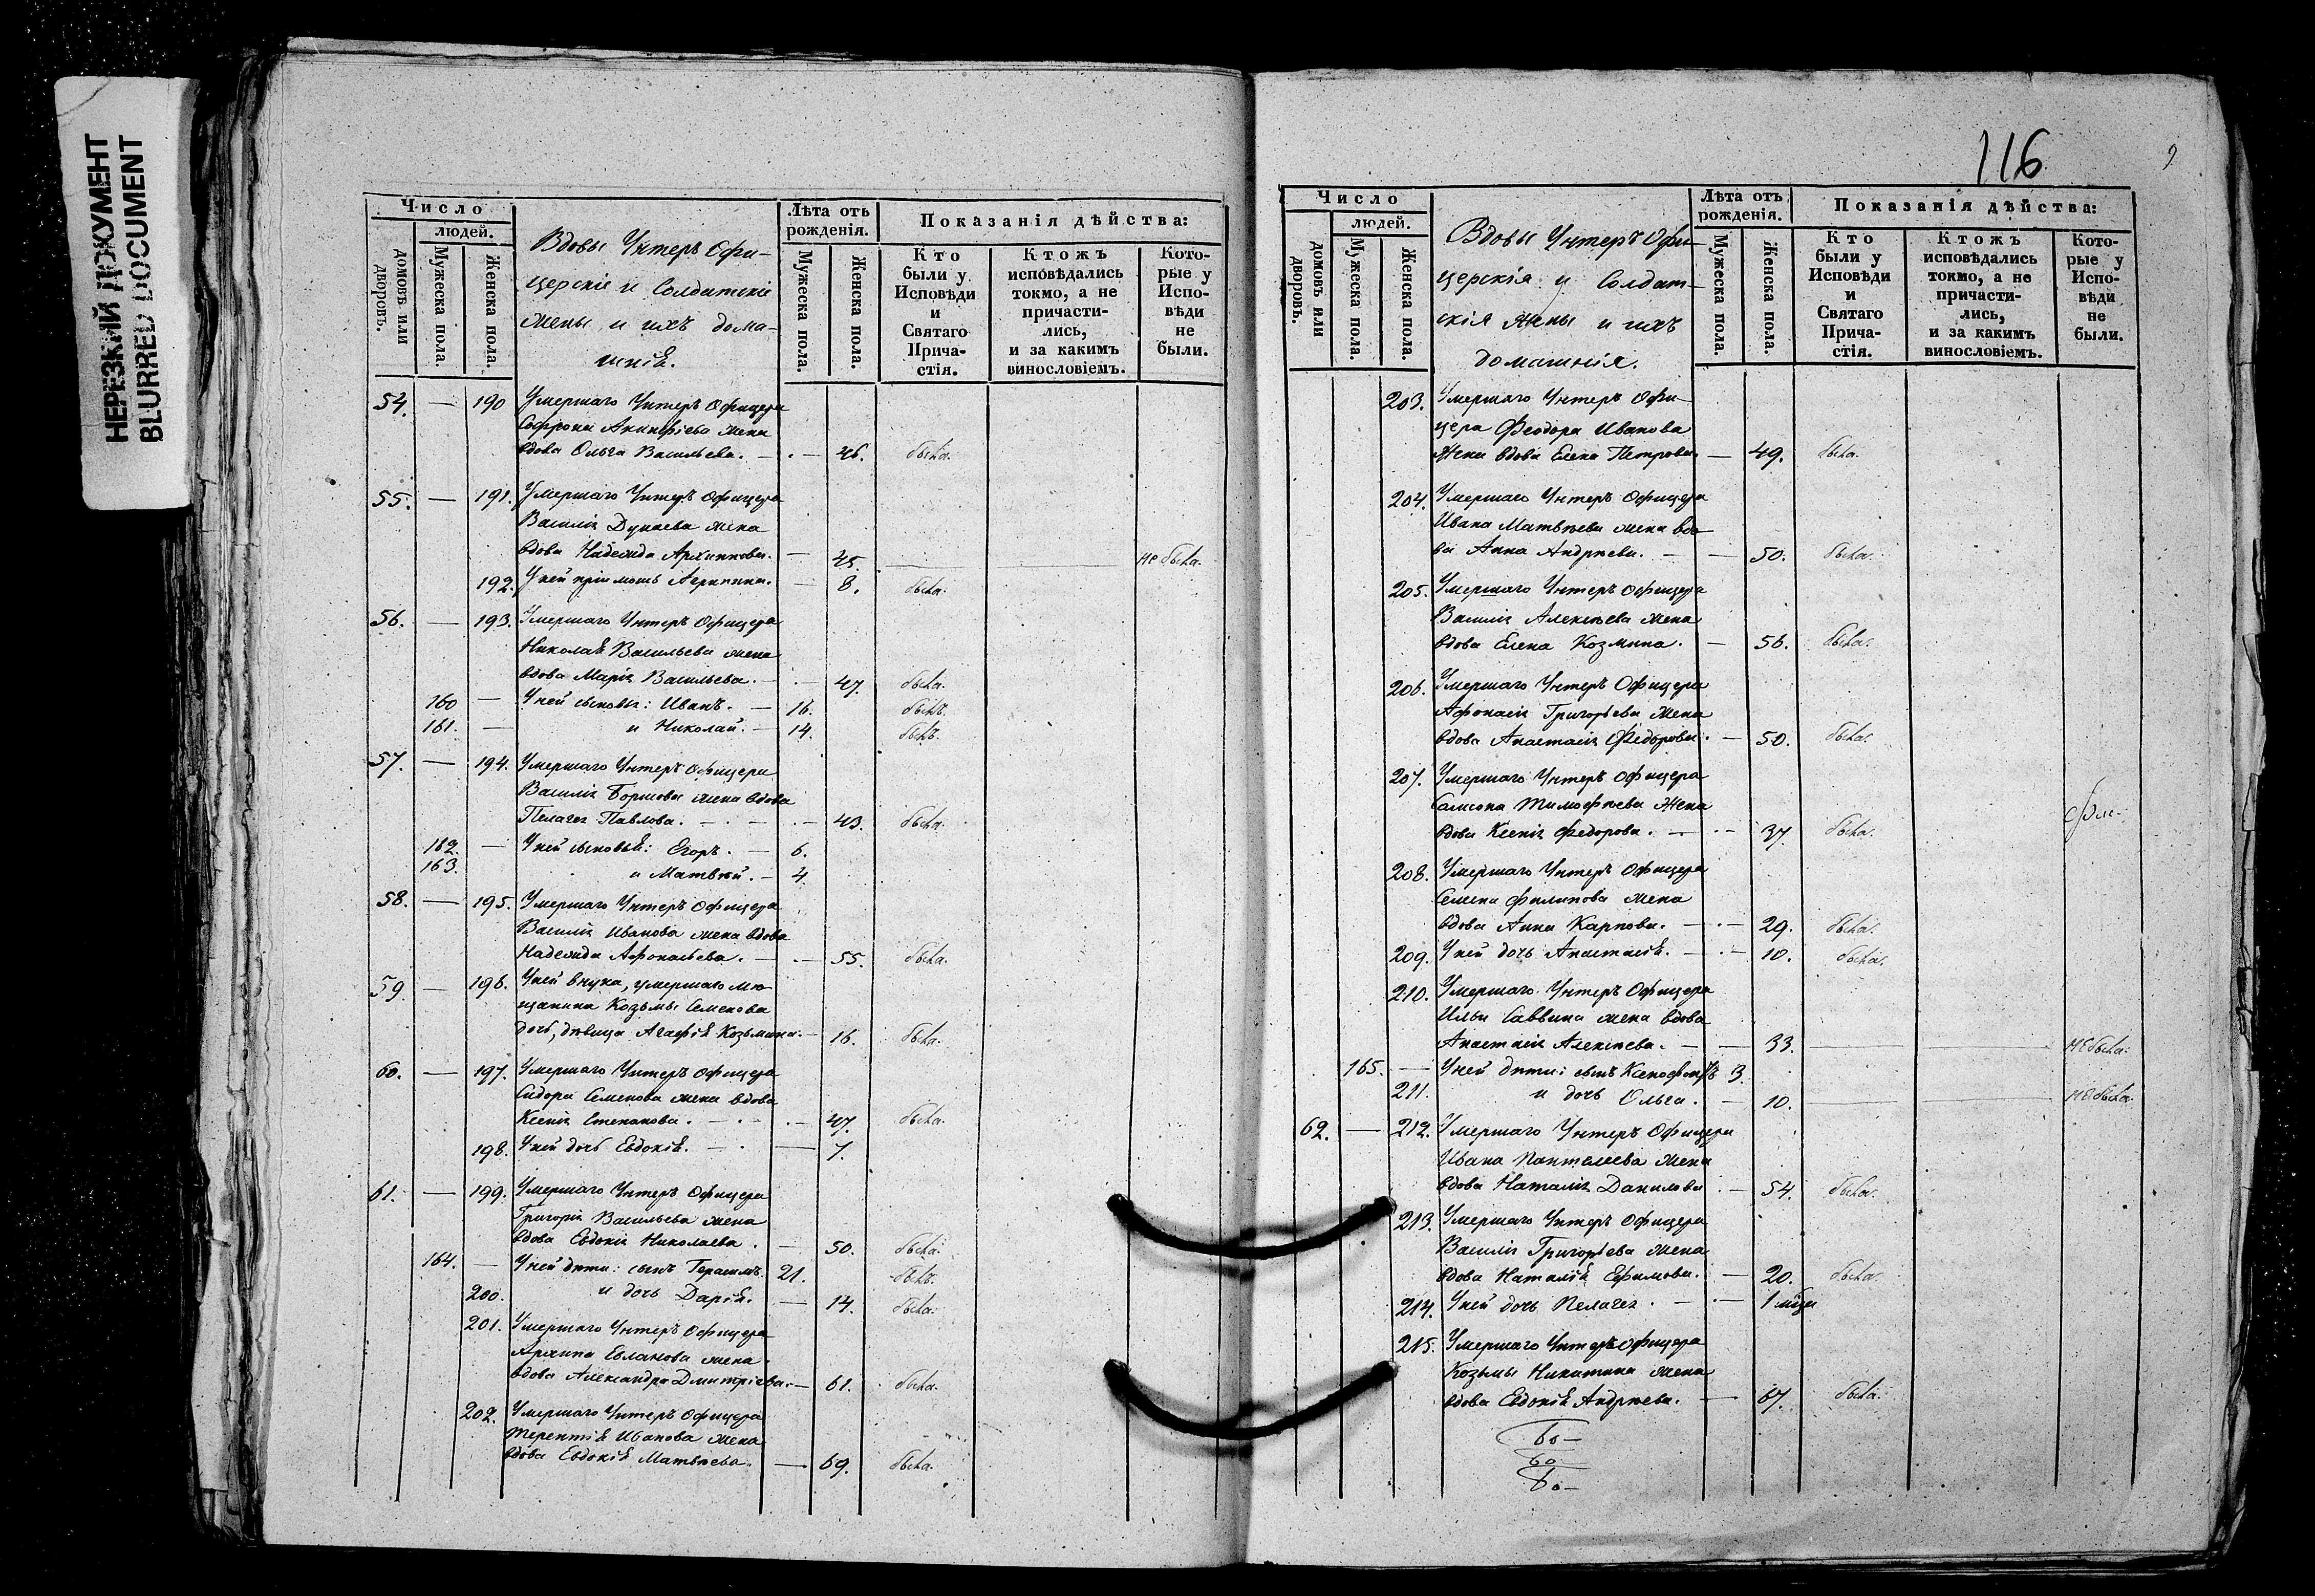 НЕРЕЗКИЙ ДОКУМЕНТ
BLURRED DOCUMENT
Число
людей.
домовъ или дворовъ.
Мужеска пола.
Женска пола.
Вдовы Унтеръ Офи-
церскіе и Солдатскіе
жены и ихъ дома-
шніѣ.
Лѣта отъ рожденія.
Мужеска пола.
Женска пола.
Показанія дѣйства:
Кто были у Исповѣди и Святаго Прича- стія.
Ктожъ исповѣдались токмо, а не причасти- лись, и за какимъ винословіемъ.
Кото- рые у Испо- вѣди не были.
54. — 190 Умершаго Унтеръ Офицера
Софрона Акинфіева жена
вдова Ольга Васильева. — 46. была.
55. — 191. Умершаго Унтеръ Офицера
Василія Дунаева жена
вдова Надежда Архиппова. — 45. не была.
192. У ней пріимошъ Агрипина. — 8. была.
56. — 193. Умершаго Унтеръ Офицера
Николаѣ Васильева жена
вдова Марія Васильева. — 47. была.
160 — У ней сыновья: Иванъ. — 16. былъ.
161. — и Николай. — 14. былъ.
57. — 194. Умершаго Унтеръ Офицера
Василія Борисова жена вдова
Пелагея Павлова. — 43. была.
162. — У ней сыновьѣ: Егоръ. — 6.
163. и Матвѣй. — 4
58. — 195. Умершаго Унтеръ Офицера
Василія Иванова жена вдова
Надежда Афонасьева. — 55. была.
59 — 196. У ней внука, умершаго мѣ-
щанина Козьмы Семенова
дочь, дѣвица Агафіѣ Козьмина. — 16. была.
60. — 197. Умершаго Унтеръ Офицера
Сидора Семенова жена вдова
Ксенія Степанова. — 47. была.
198. У ней дочь Евдокіѣ. — 7.
61. — 199. Умершаго Унтеръ Офицера
Григорія Васильева жена
вдова Евдокія Николаева. — 50. была.
164. — У ней дѣти: сынъ Герасимъ. 21. былъ.
200. и дочь Даріѣ. — 14. была.
201. Умершаго Унтеръ Офицера
Архипа Евланова жена
вдова Александра Дмитріева. — 61. была.
202. Умершаго Унтеръ Офицера
Терентіѣ Иванова жена
вдова Евдокіѣ Матвѣева. — 69. была.
116
Число
людей.
домовъ или дворовъ.
Мужеска пола.
Женска пола.
Вдовы Унтеръ Офи-
церскія и Солдат-
скія жены и ихъ
домашнія.
Лѣта отъ рожденія.
Мужеска пола.
Женска пола.
Показанія дѣйства:
Кто были у Исповѣди и Святаго Прича- стія.
Ктожъ исповѣдались токмо, а не причасти- лись, и за какимъ винословіемъ.
Кото- рые у Испо- вѣди не были.
203. Умершаго Унтеръ Офи-
цера Феодора Иванова
Жена вдова Елена Петрова. — 49. была.
204. Умершаго Унтеръ Офицера
Ивана Матвѣева жена вдо-
ва Анна Андрѣева. — 50. была.
205. Умершаго Унтеръ Офицера
Василія Алексѣева жена
вдова Елена Козмина. — 56. была.
206. Умершаго Унтеръ Офицера
Афонасія Григорьева жена
вдова Анастасія Федорова. — 50. была.
207. Умершаго Унтеръ Офицера
Самсона Тимофѣева жена
вдова Ксенія Федорова. — 37. была.
208. Умершаго Унтеръ Офицера
Семена Филипова жена
вдова Анна Карпова. — 29. была.
209. У ней дочь Анастасіѣ. — 10. была.
210. Умершаго Унтеръ Офицера
Ильи Саввина жена вдова
Анастасія Алексѣева. — 33. не была.
165. — У ней дѣти: сынъ Ксенофонтъ 3.
211. и дочь Ольга. — 10. не была.
62. — 212. Умершаго Унтеръ Офицера
Ивана Пантелеева жена
вдова Наталія Данилова — 54. была.
213. Умершаго Унтеръ Офицера
Василія Григорьева жена
вдова Наталіѣ Ефимова. — 20. была.
214. У ней дочь Пелагея. — 1
215. Умершаго Унтеръ Офицера
Козьмы Никитина жена
вдова Евдокіѣ Андрѣева. — 67. была.